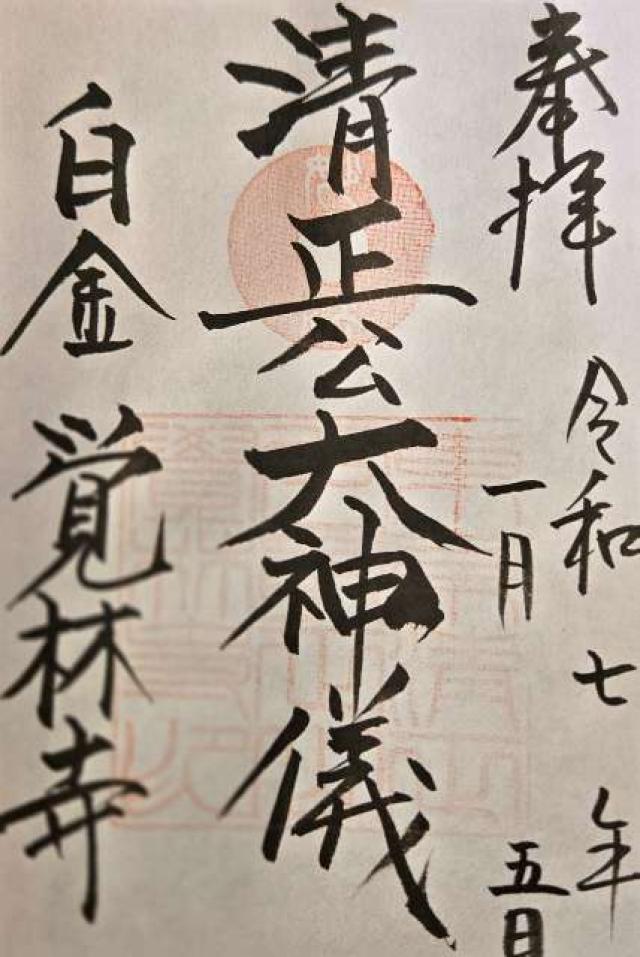 奉拝
令和七年
一月五日
清正公大神儀
白金 覚林寺